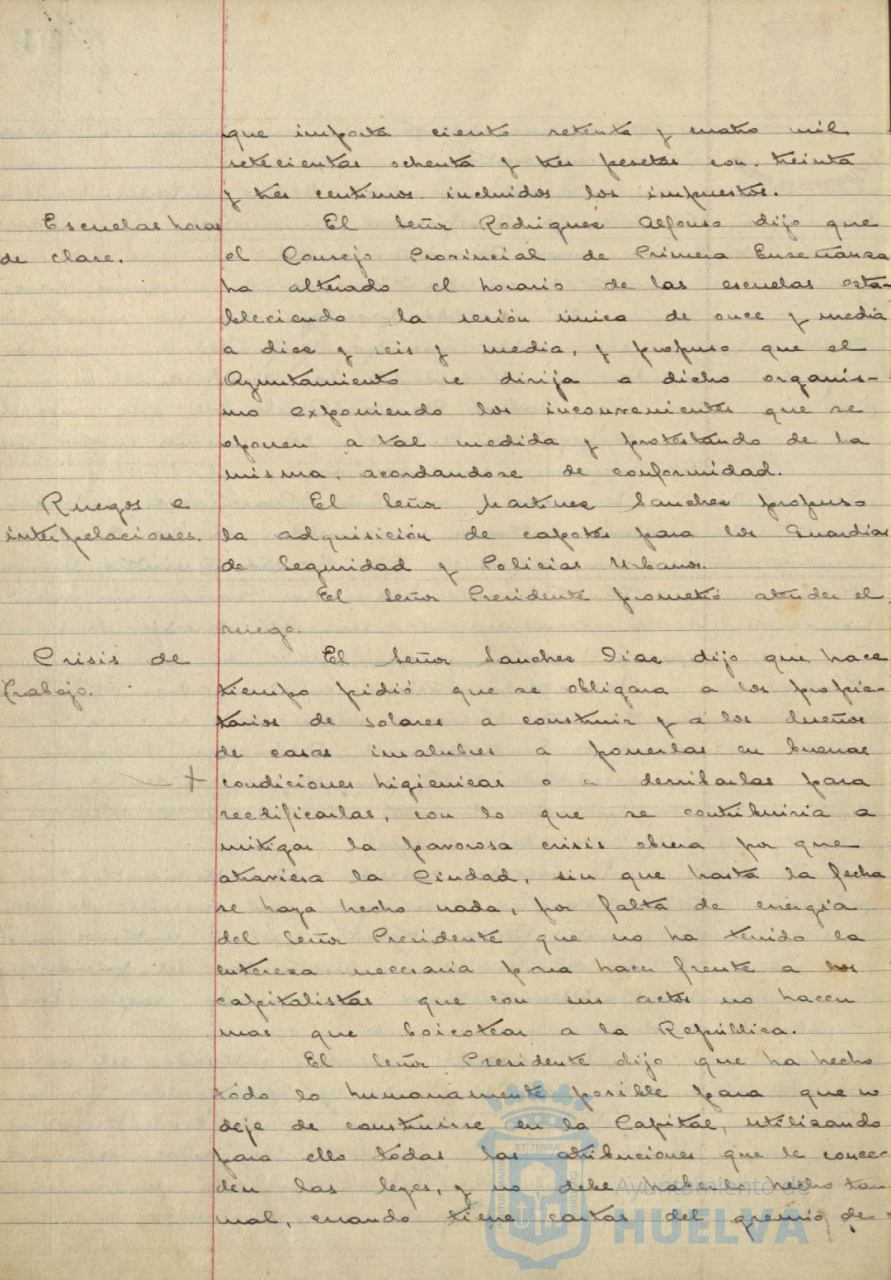 que importa ciento setenta y cuatro mil
setecientas ochenta y tres pesetas con treinta
y tres centimos incluidos los impuestos.
Escuelas horas
de clase.
El Señor Rodriguez Alfonso dijo que
el Consejo Provincial de Primera Enseñanza
ha alterado el horario de las escuelas esta-
bleciendo la sesión única de once y media
a diez y seis y media, y propuso que el
Ayuntamiento se dirija a dicho organis-
mo exponiendo los inconvenientes que se
oponen a tal medida y protestando de la
misma, acordandose de conformidad.
Ruegos e
interpelaciones.
El Señor Martinez Sanchez propuso
la adquisición de capotes para los Guardias
de Seguridad y Policias Urbanos.
El Señor Presidente prometió atender el
ruego.
Crisis de
trabajo.
El Señor Sanchez Diaz dijo que hace
tiempo pidió que se obligara a los propie-
tarios de solares a construir y a los dueños
de casas insalubres a ponerlas en buenas
condiciones higienicas o a derribarlas para
reedificarlas, con lo que se contribuiria a
mitigar la pavorosa crisis obrera por que
atraviesa la Ciudad, sin que hasta la fecha
se haya hecho nada, por falta de energia
del Señor Presidente que no ha tenido la
entereza necesaria para hacer frente a los
capitalistas que con sus actos no hacen
mas que boicotear a la República.
El Señor Presidente dijo que ha hecho
todo lo humanamente posible para que no
deje de construirse en la Capital, utilizando
para ello todas las atribuciones que le conce-
den las leyes, y no debe haberlo hecho tan
mal, cuando tiene cartas del gremio de
Ayuntamiento de
HUELVA